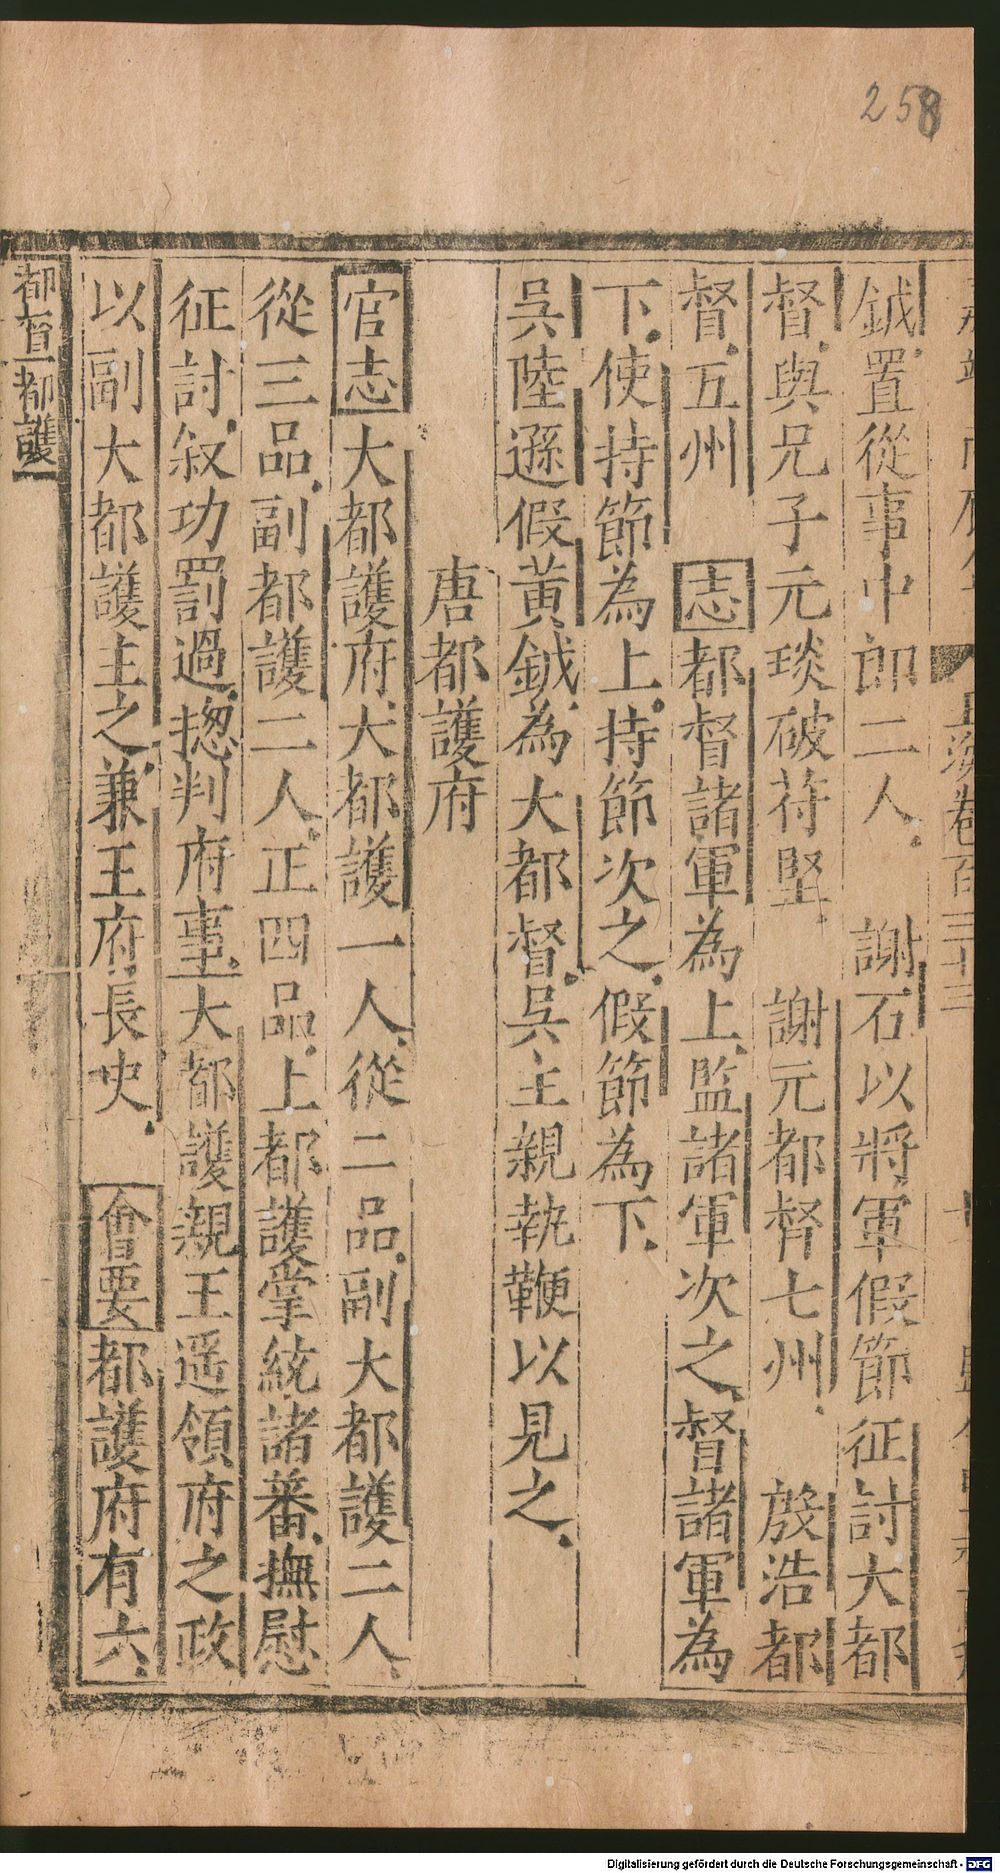 258
玉海卷百三十三
鉞置從事中郎二人 謝石以將軍假節征討大都
督與兄子元琰破苻堅 謝元都督七州 殷浩都
督五州 志都督諸軍為上監諸軍次之督諸軍為
下使持節為上持節次之假節為下
吳陸遜假黃鉞為大都督吳主親執鞭以見之
唐都護府
官志大都護府大都護一人從二品副大都護二人
從三品副都護二人正四品上都護掌統諸蕃撫慰
征討叙功罰過揔判府事大都護親王遥領府之政
以副大都護主之兼王府長史 會要都護府有六
都督都護
Digitalisierung gefördert durch die Deutsche Forschungsgemeinschaft - DFG